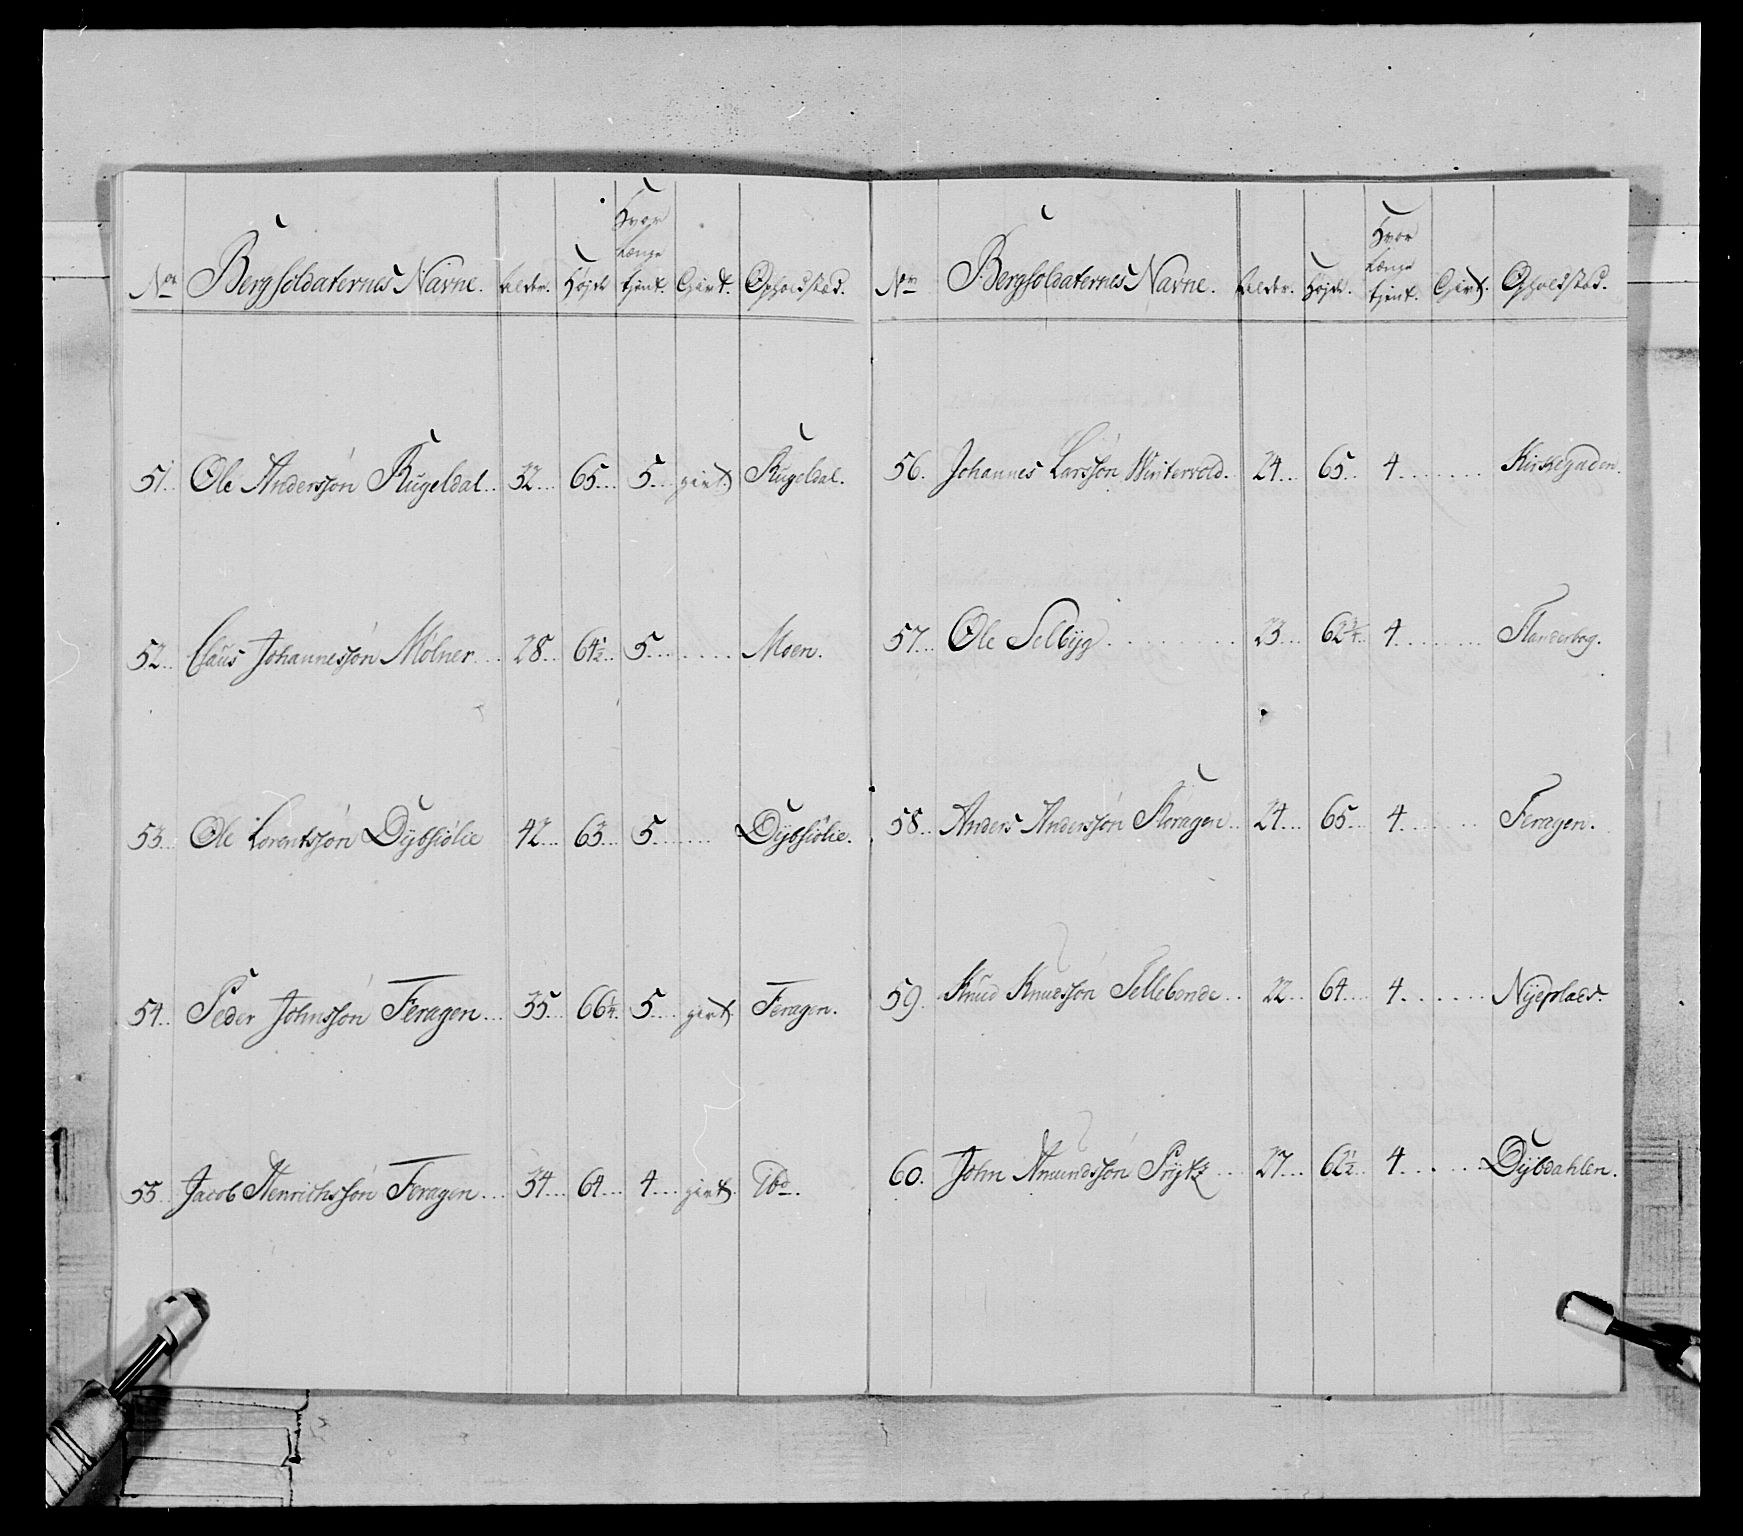 No. Bergsoldaternes Navne. Alder. Højde Hvor Længe tjent. Givt. Opholdstæd.
51. Ole Anderssøn Rugeldal. 32. 65. 5. givt Rugeldal.
52. Claus Johannessøn Mølner. 28. 64½. 5. Moen.
53. Ole Lorentssøn Dÿbsiølie 42. 63. 5. Dÿbsiølie.
54. Peder Johnssøn Feragen. 35. 66¼. 5. givt Feragen.
55. Jacob Henrichssøn Feragen. 34. 64. 4. givt. Ibd.
No. Bergsoldaternes Navne. Alder. Højde. Hvor Længe tjent. Givt. Opholdstæd.
56. Johannes Larssøn Wintervold. 24. 65. 4. Kirkegaden.
57. Ole Selbÿg. 23. 62¾. 4. Flanderbog.
58. Anders Anderssøn Floragen. 24. 65. 4. Feragen.
59. Knud Knudssøn Tellebonde. 22. 64. 4. Nÿeplads.
60. John Amundssøn Prÿtz. 27. 62½. 4. Dÿbdahlen.